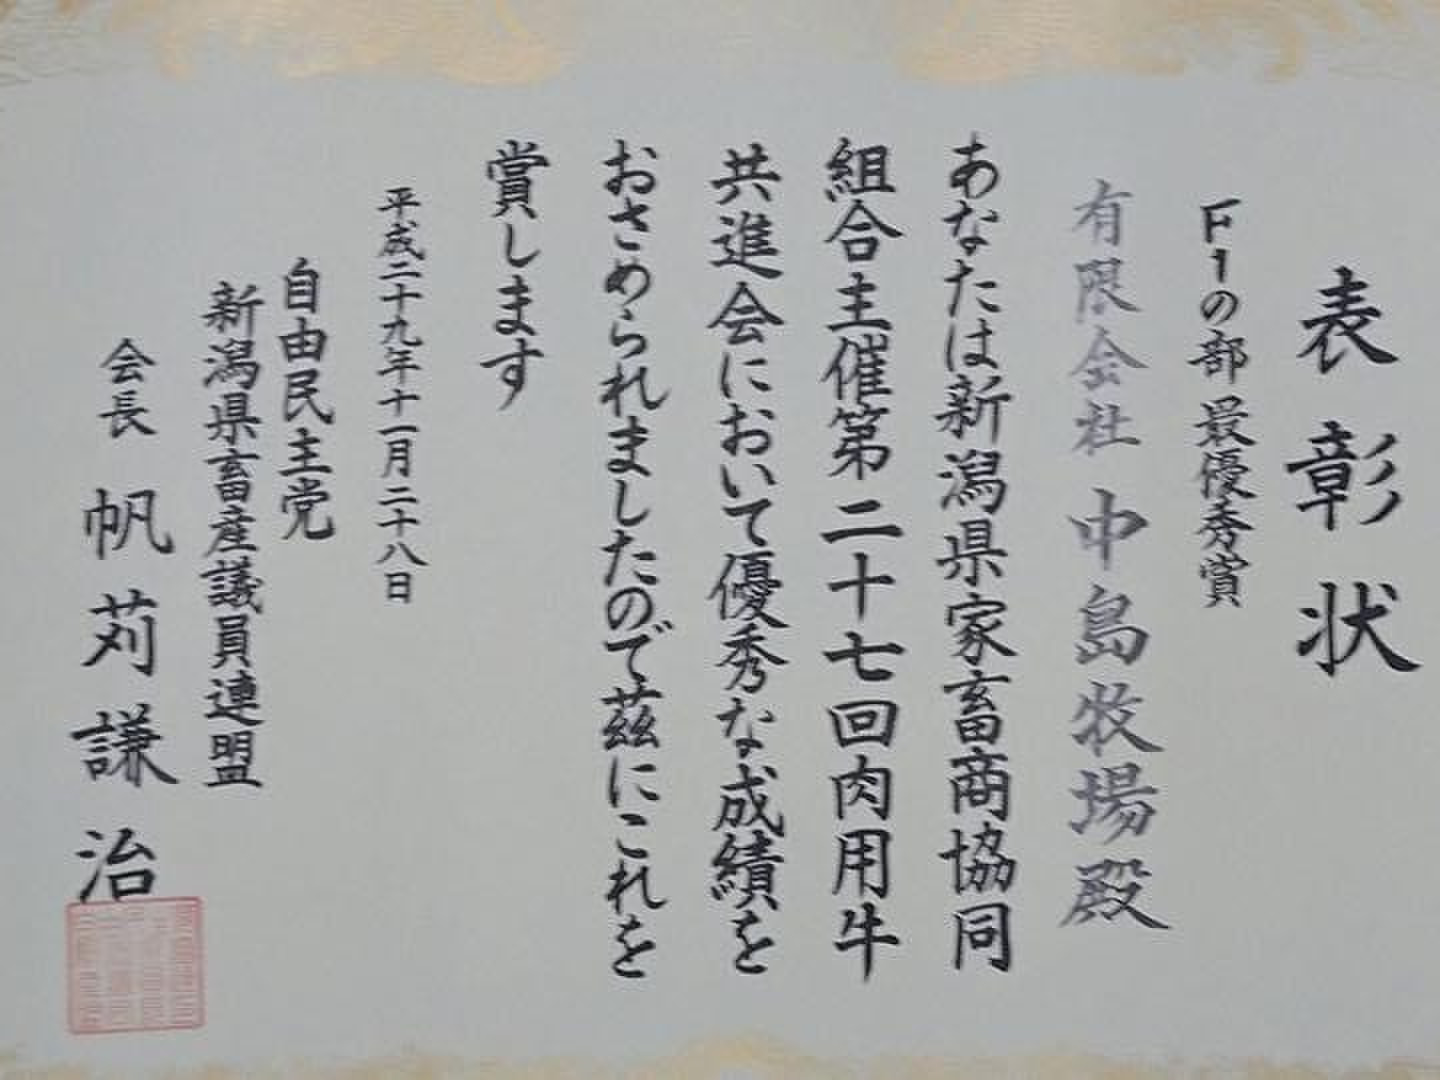 表彰状
F1の部 最優秀賞
有限会社 中島牧場殿
あなたは新潟県家畜商協同
組合主催第二十七回肉用牛
共進会において優秀な成績を
おさめられましたので茲にこれを
賞します
平成二十九年十一月二十八日
自由民主党
新潟県畜産議員連盟
会長 帆苅謙治